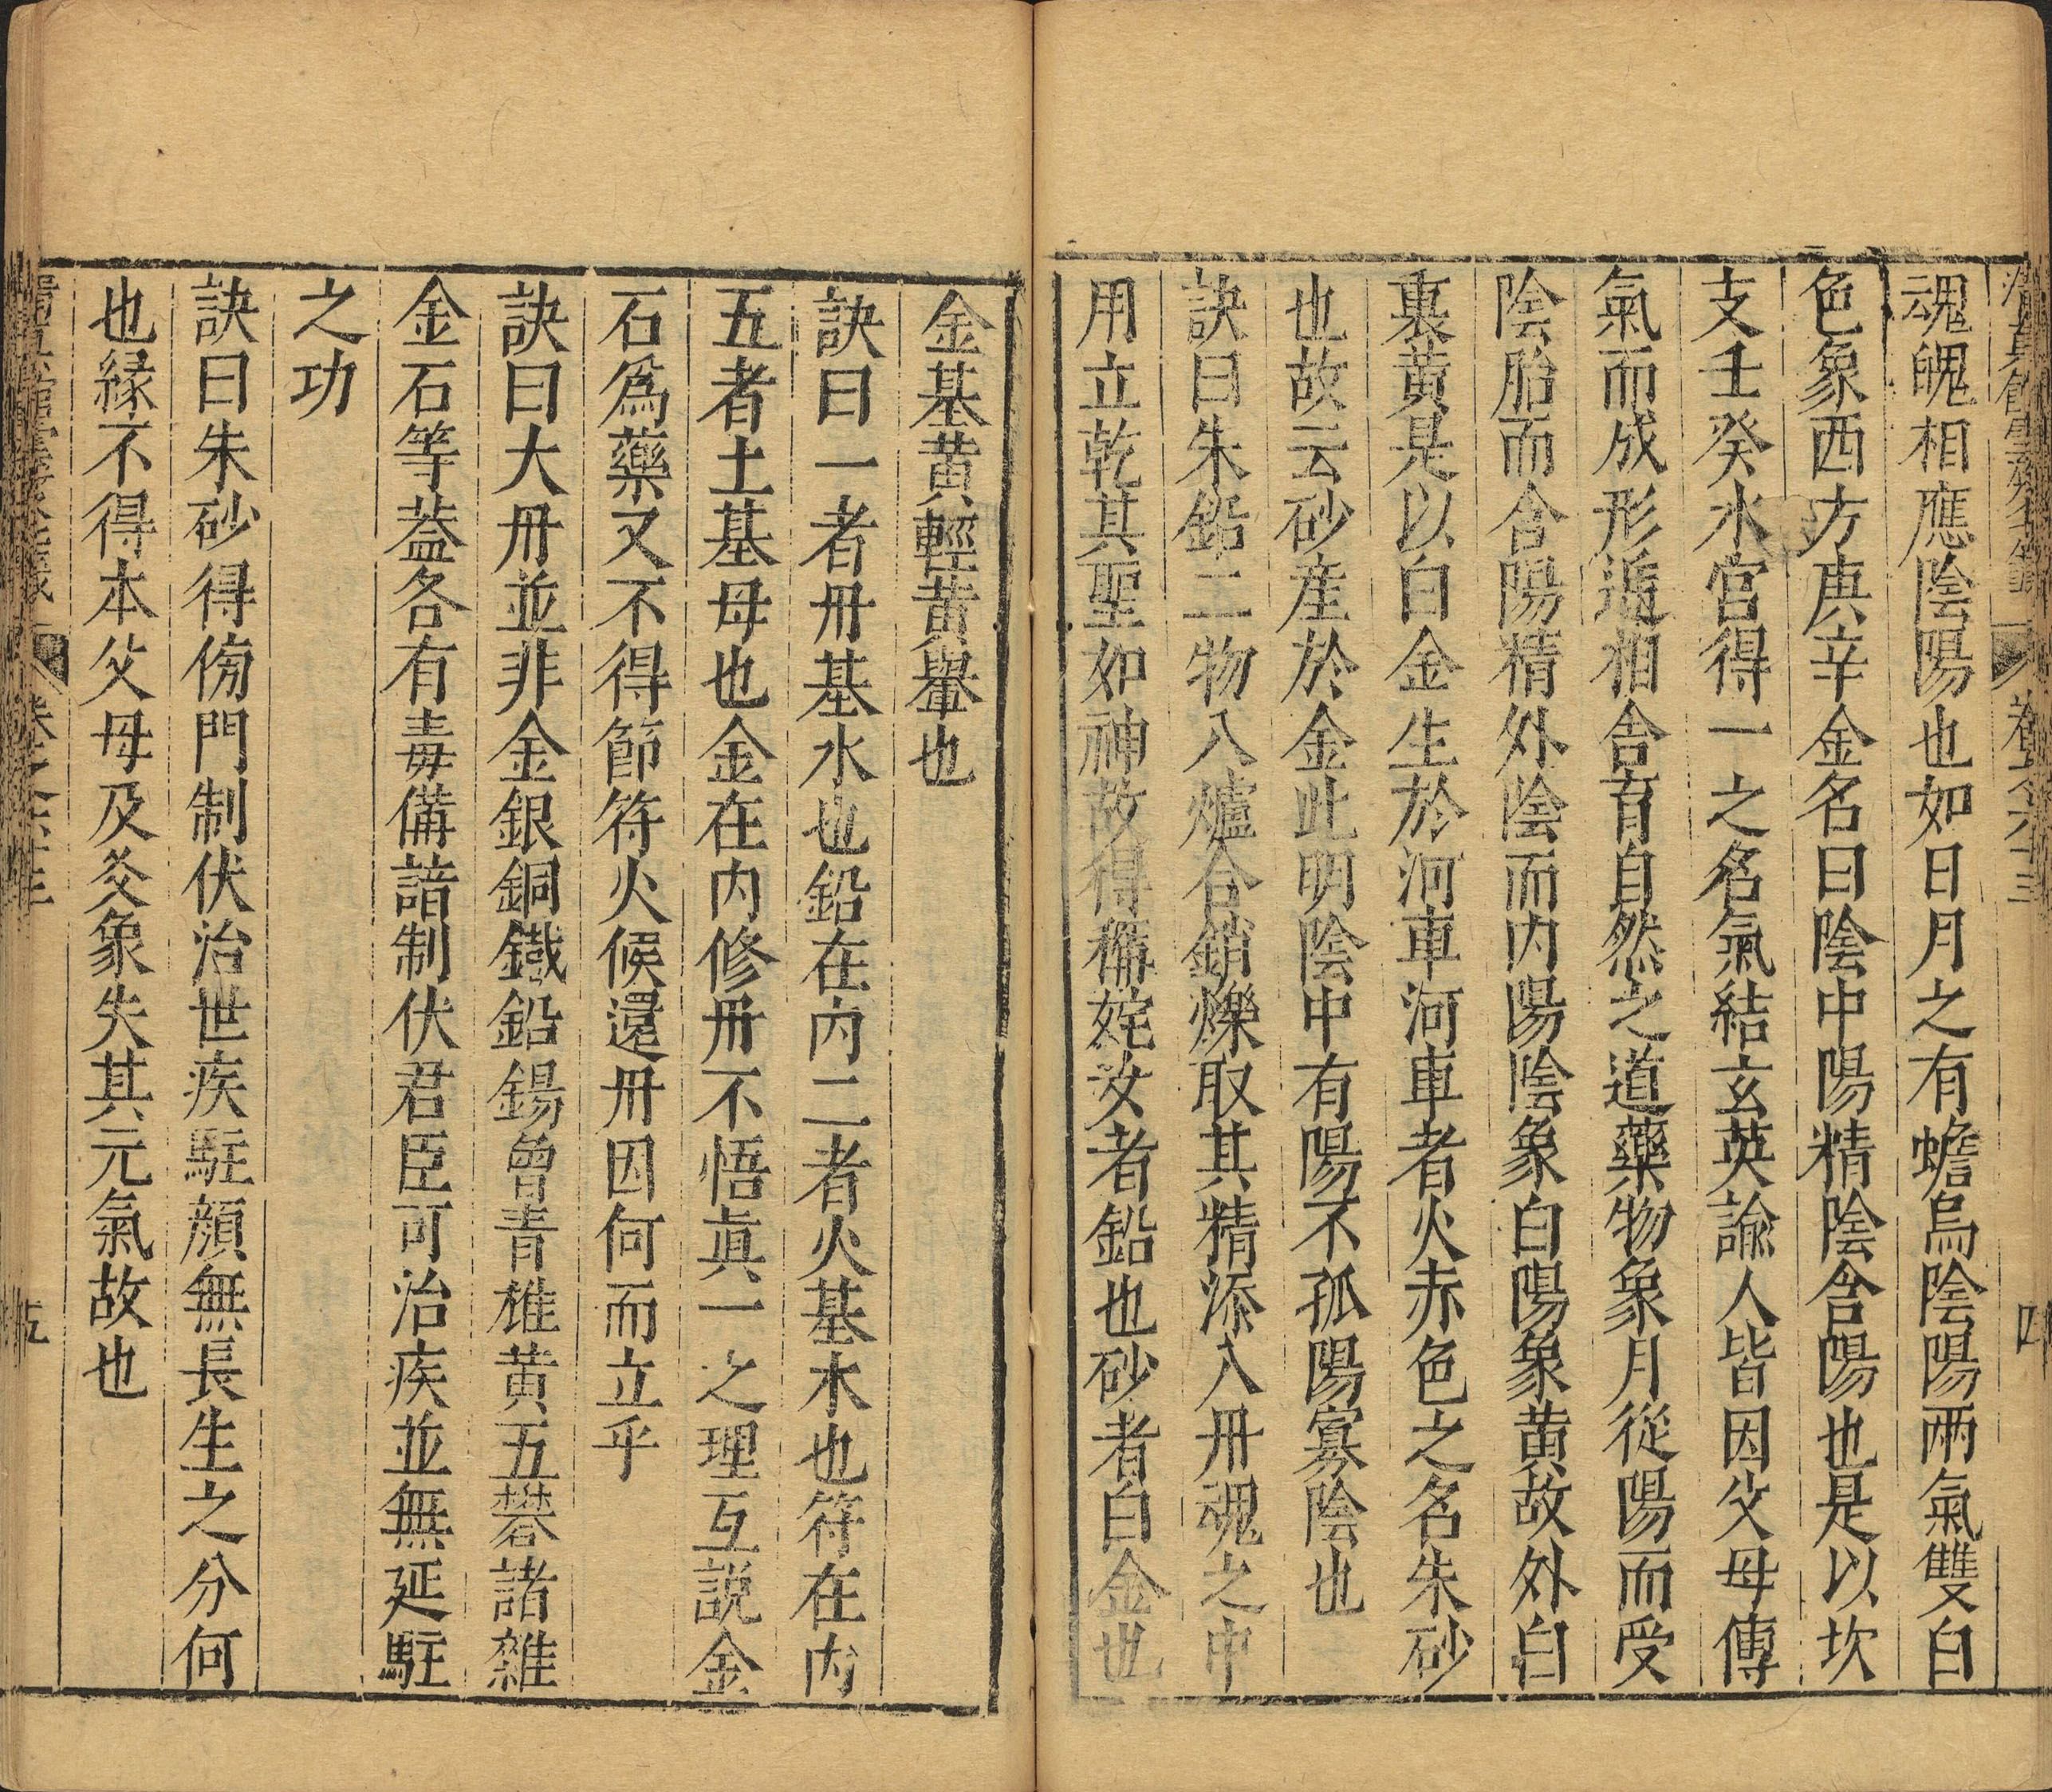 魂魄相應陰陽也如日月之有蟾烏陰陽兩氣雙白
色象西方庚辛金名曰陰中陽精陰含陽也是以坎
支壬癸水宫得一之名氣結玄英諭人皆因父母傳
氣而成形遞相舍育自然之道藥物象月從陽而受
陰胎而含陽精外陰而内陽陰象白陽象黄故外白
裏黄是以白金生於河車河車者火赤色之名朱砂
也故云砂産於金此明陰中有陽不孤陽寡陰也
訣曰朱鉛二物入爐合銷爍取其精添入丹魂之中
用立乾其聖如神故得稱姹女者鉛也砂者白金也
卷之六十三
四
金基黄輕黄轝也
訣曰一者丹基水也鉛在内二者火基木也符在内
五者土基母也金在内修丹不悟眞一之理互説金
石爲藥又不得節符火候還丹因何而立乎
訣曰大丹並非金銀銅鐵鉛錫曾青雄黄五礬諸雜
金石等葢各有毒備諳制伏君臣可治疾並無延駐
之功
訣曰朱砂得傍門制伏治世疾駐顔無長生之分何
也緣不得本父母及爻象失其元氣故也